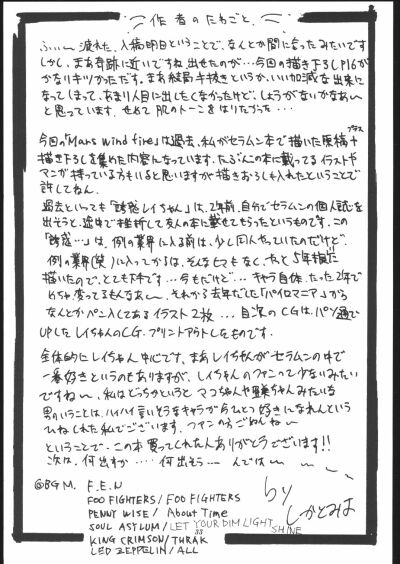 作者のたわごと
ふぅ〜〜疲れた、入稿明日ということで、なんとか間に合ったみたいです
しかし、まあ奇跡に近いですね、出せたのが…今回の描き下ろしP16が
かなりキツかっただす。まあ結局手抜きというか、いい加減な出来に
なってしまって、あまり人目に出したくなかったけど、しょうがないかなあ〜
と思っています、せめて肌のトーンをはりたかった…
今回の「Mars wind fire」は過去、私がセラムン本で描いた原稿+
プラス
描き下ろしを集めた内容になっています。たぶんこの本に載ってるイラストや
マンガ持っている方もいると思いますが描きおろしも入れたということで
許してねん。
過去といっても「誘惑レイちゃん」は、2年前、自分でセラムンの個人誌を
出そうと、途中で挫折して友人の本に載せてもらったというものです。この
「誘惑…」は、例の業界に入る前は、少し同人やっていたのだけど、
例の業界(笑)に入ってからは、そんなヒマもなく、たと5年振に
描いたので、とても下手です…今もだけど…キャラ自体、たった2年で
めちゃ変ってるもんなあ〜、それから去年だした「パイロマニア」から
なんとかペン入してあるイラスト2枚…目次のCGは、パソ通で
UPしたレイちゃんのCG.プリントアウトしたものです。
全体的にレイちゃん中心です、まあレイちゃんがセラムンの中で
一番好きというのもありますが、レイちゃんのファンって少ないみたい
ですね〜、私はどっちかというと マコちゃんや亜美ちゃんみたいな
男のいうことは、ハイハイ言いそうなキャラがらひとつ好きになれんという
ひねくれた私でございます、ファンの方ごめんね〜
ということで、この本買ってくれた人ありがとうございます!!
次は、何出すか…何出そう…んでは〜
by しかとみよ
@BGM. F.E.N
FOO FIGHTERS/FOO FIGHTERS
PENNY WISE/About Time
SOUL ASYLUM/LET YOUR DIM LIGHT SHINE
33
KING CRIMSON/THRAK
LED ZEPPELIN/ALL